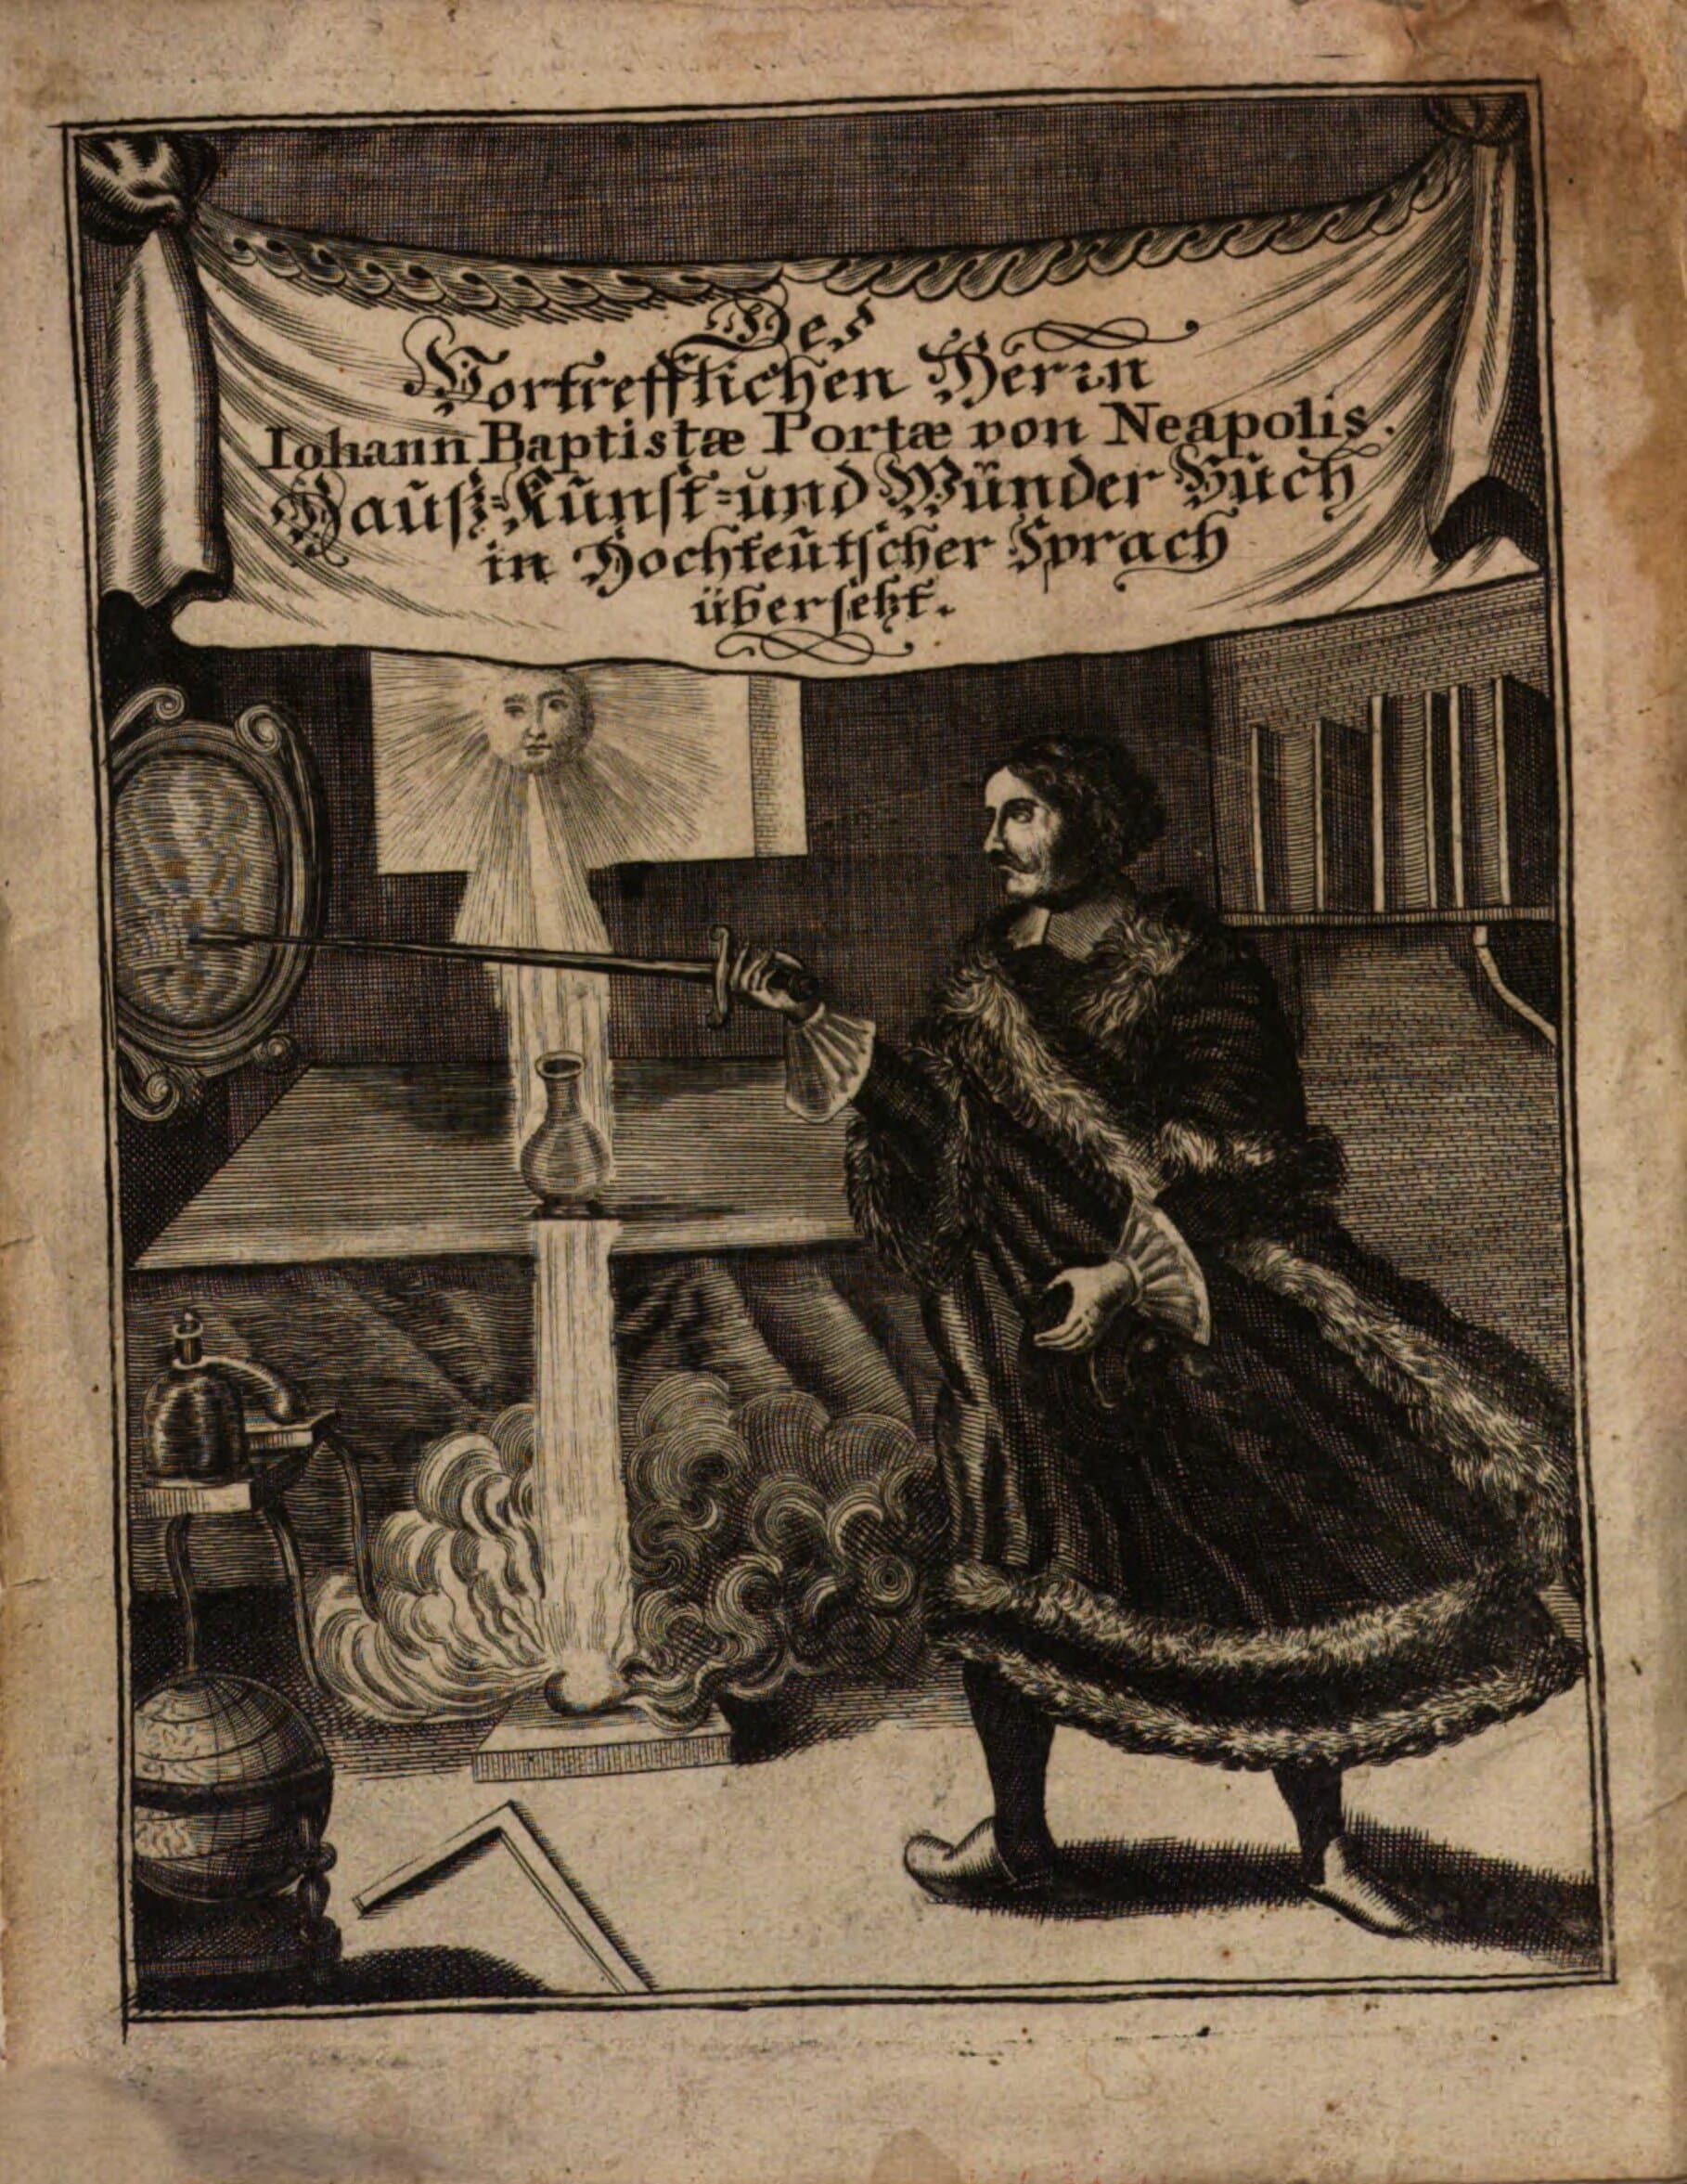 Des
Vortrefflichen Herꝛn
Iohann Baptistæ Portæ von Neapolis.
Hauſz-Kunſt-und Wunder Buch
in Hochteutſcher Sprach
überſetzt.